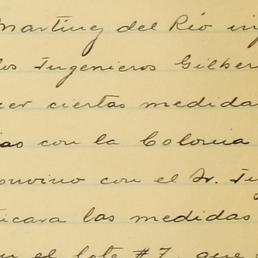 Martinez del Río in
los Ingenieros Gilber
cer ciertas medida
as con la Colonia
onvino con el Sr. In
icara las medidas
n el lote #7, que